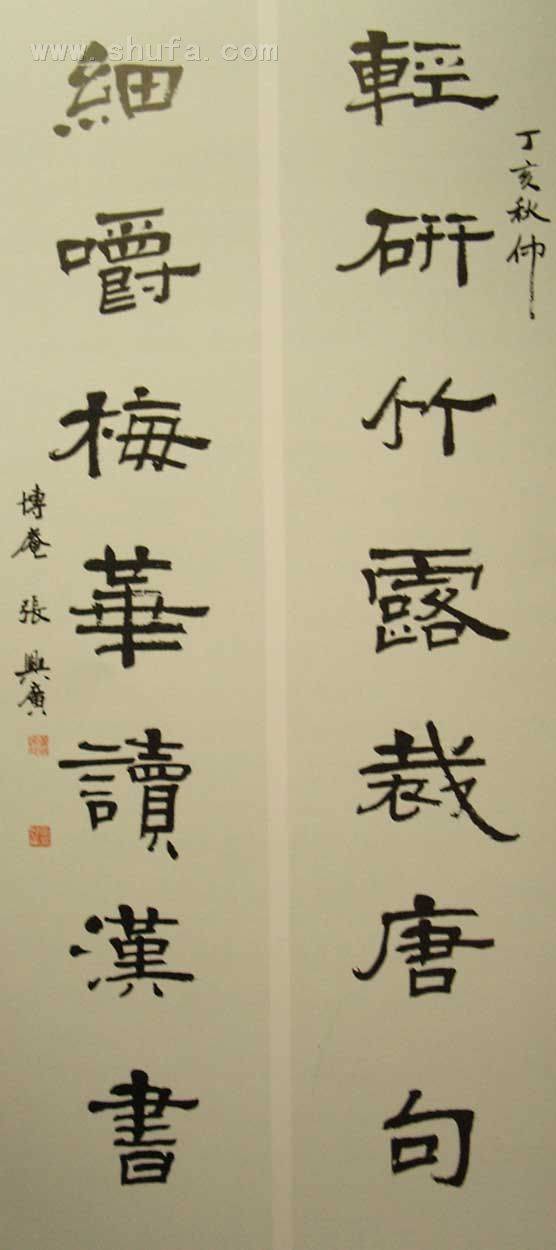 www.shufa.com
丁亥秋仲
輕研竹露裁唐句
細嚼梅華讀漢書
博庵 張興廣